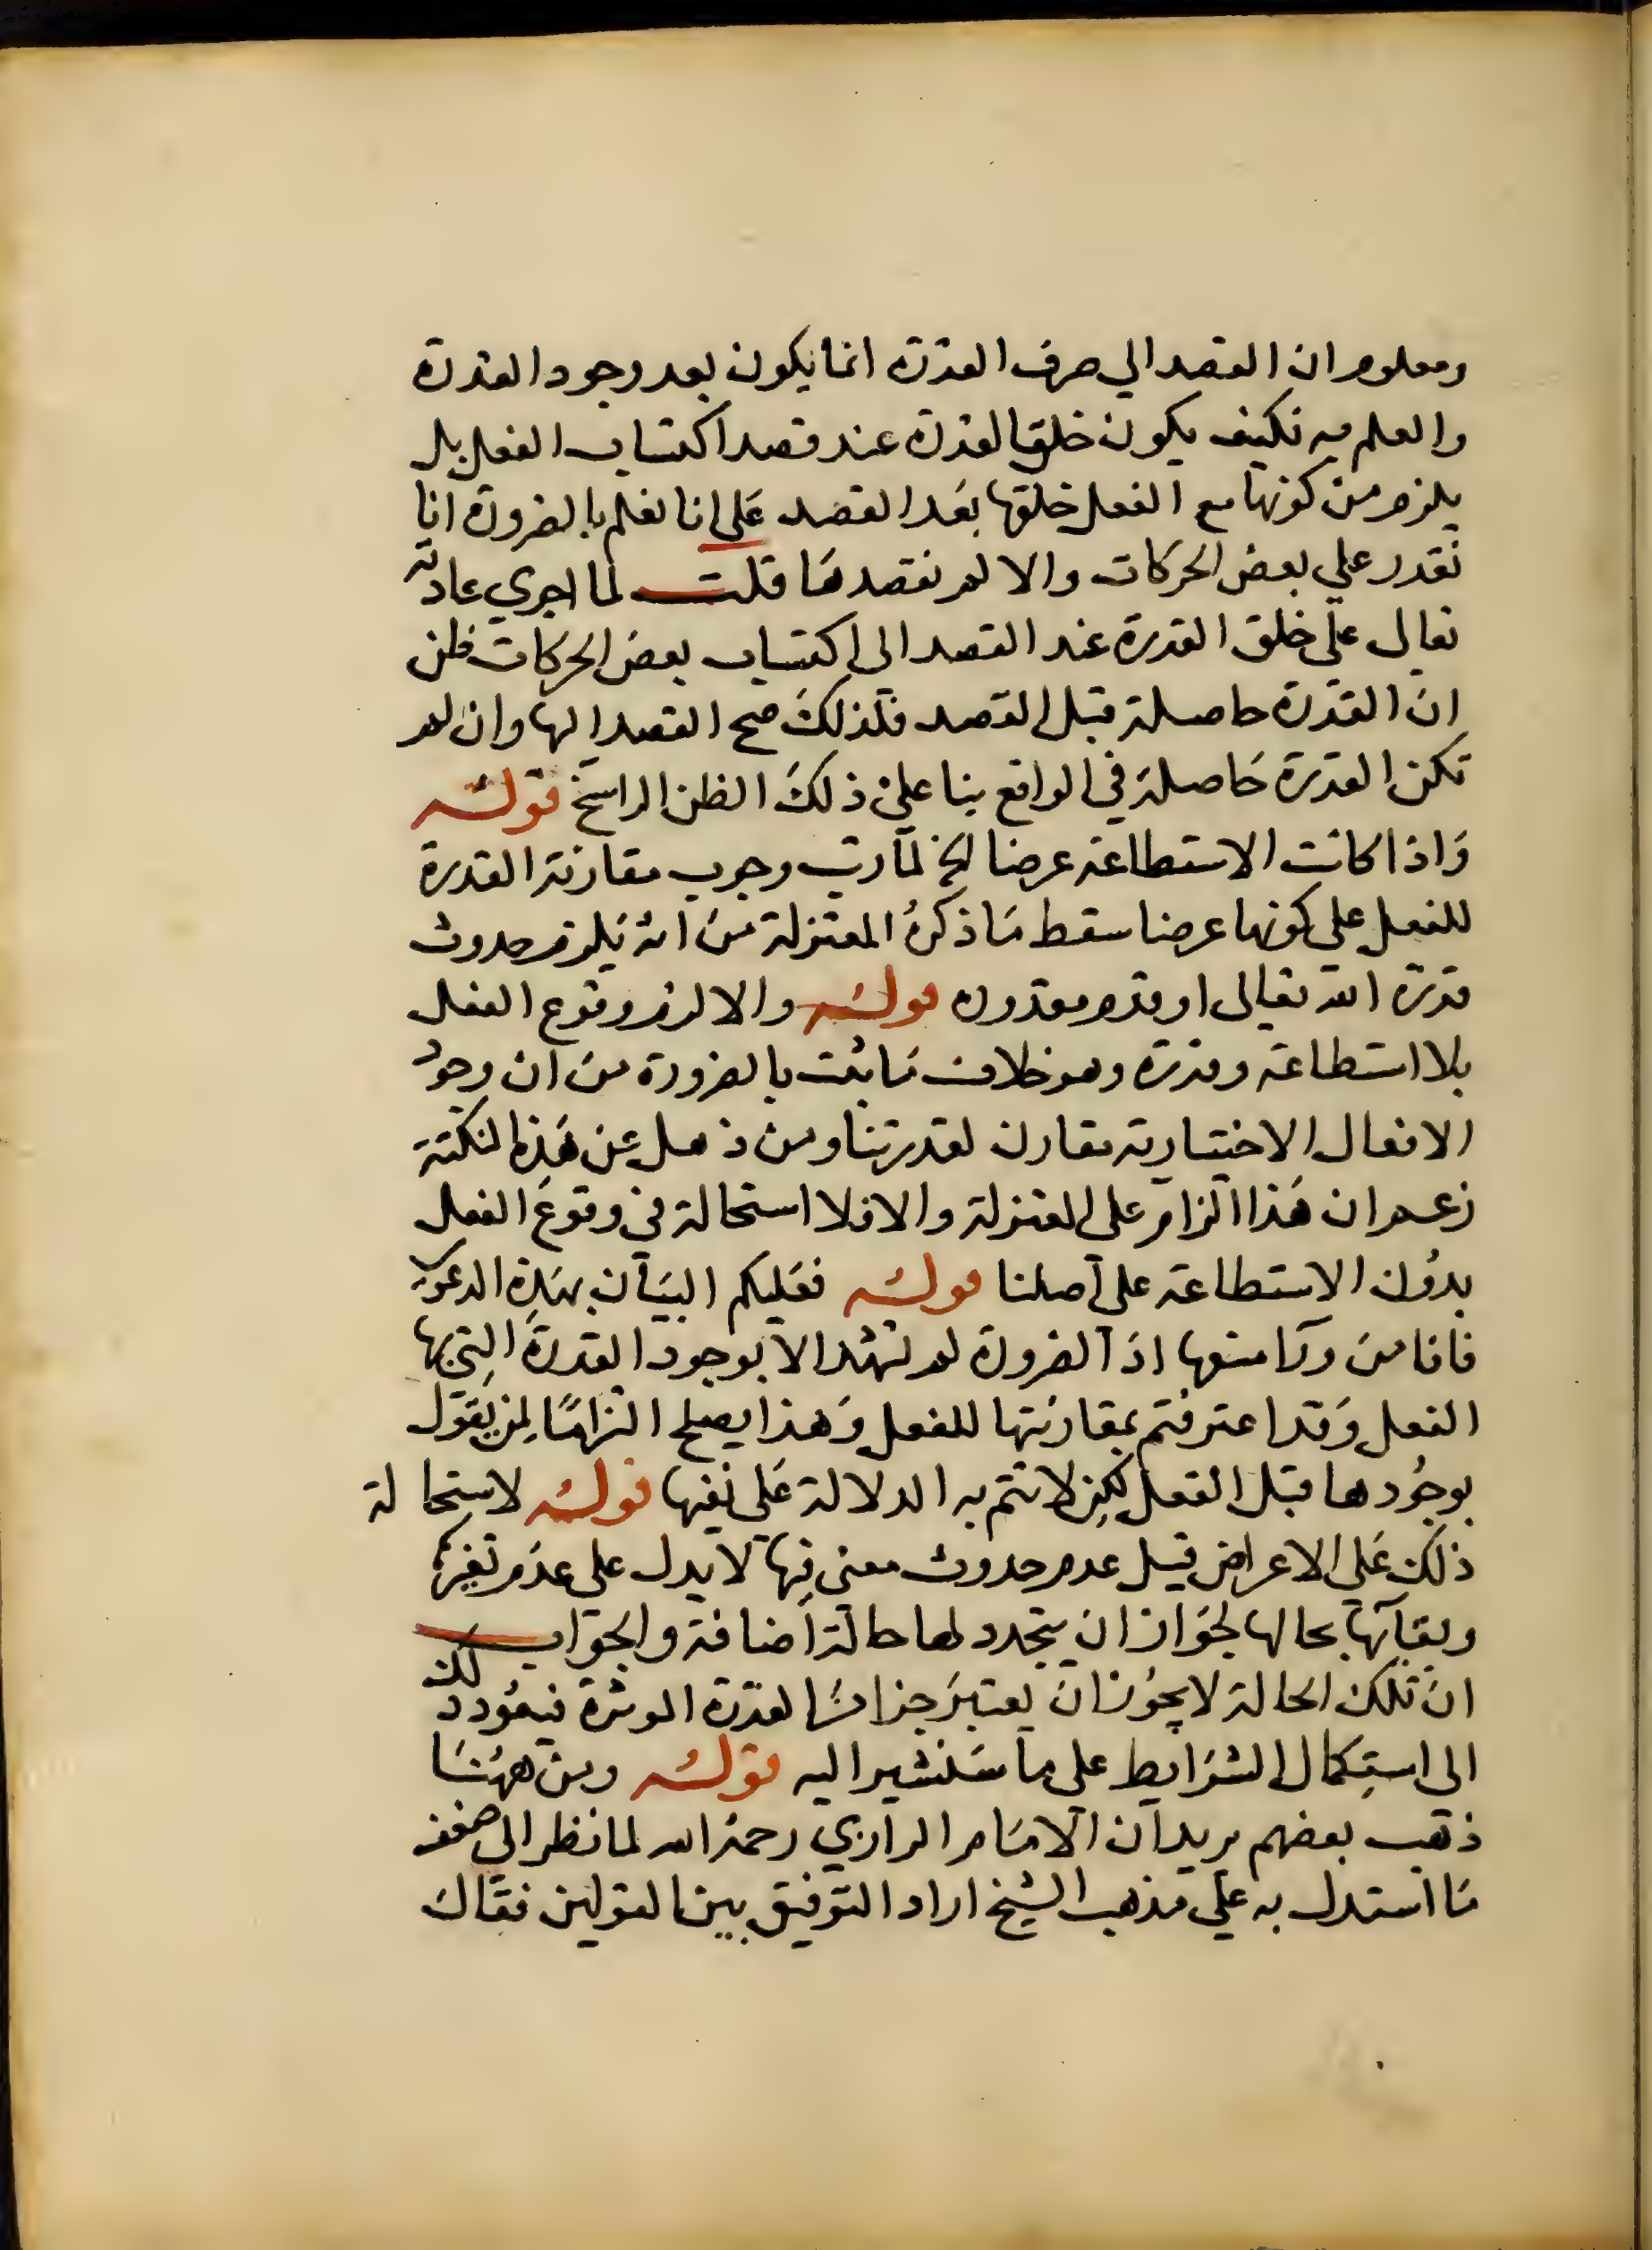 ومعلوم ان القصد الي صرف القدرة انما يكون بعد وجود القدرة
والعلم به فكيف يكون خلق القدرة عند قصد اكتساب الفعل بل
يلزم من كونها مع الفعل خلقها بعد القصد على انا نعلم بالضرورة انا
نقدر علي بعض الحركات والا لم نقصدها قلت لما اجري عادته
تعالى على خلق القدرة عند القصد الى اكتساب بعض الحركات فظن
ان القدرة حاصلة قبل القصد فلذلك صح القصد اليها وان لم
تكن القدرة حاصلة في الواقع بنا على ذلك الظن الراسخ قوله
واذا كانت الاستطاعة عرضا الخ لما رتب وجوب مقارنة القدرة
للفعل على كونها عرضا سقط ما ذكره المعتزلة من انه يلزم حدوث
قدرة الله تعالى او قدم مقدوره قوله والا لزم وقوع الفعل
بلا استطاعة وقدرة وهو خلاف ما ثبت بالضرورة من ان وجود
الافعال الاختيارية مقارن لقدرتنا ومن ذهل عن هذه النكتة
زعم ان هذا الزام على المعتزلة والا فلا استحالة في وقوع الفعل
بدون الاستطاعة على اصلنا قوله فعليكم البيان بهذه الدعوى
فانا من ورآ منعها اذ الضرورة لم تشهد الا بوجود القدرة التي بها
الفعل وقد اعترفتم بمقارنتها للفعل وهذا يصلح التزامًا لمن يقول
بوجودها قبل الفعل لكن لا تتم به الدلالة على نفيها قوله لاستحالة
ذلك على الاعراض قيل عدم حدوث معنى فيها لا يدل على عدم تغيرها
وبقآئها بحالها لجواز ان يتجدد لها حالة اضافة والجواب
ان تلك الحالة لا يجوز ان يعتبر جزا من القدرة الموثرة فيعود ذلك
الى استكمال الشرايط على ما سنشير اليه قوله ومن ههنا
ذهب بعضهم يريد ان الامام الرازي رحمه الله لما نظر الى ضعف
ما استدل به على مذهب الشيخ اراد التوفيق بين القولين فقال